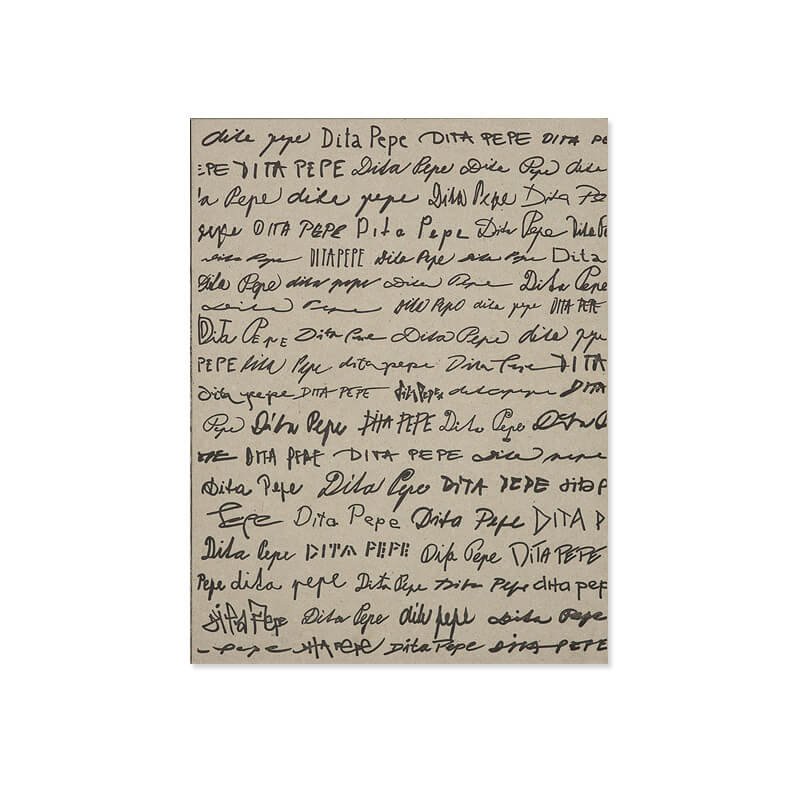 dita pepe Dita Pepe DITA PEPE DITA PE
PE DITA PEPE Dita Pepe Dita Pepe Dita
a Pepe dita pepe Dita Pepe Dita Pe
pepe DITA PEPE Dita Pepe Dita Pepe Dita P
dita pepe DITAPEPE Dita Pepe dita Pepe Dita
Dita Pepe dita pepe Dita Pepe Dita Pepe
Dita Pepe Dita Pepe dita pepe DITA PEPE
Dita Pepe Dita Pepe Dita Pepe dita pepe
PEPE Dita Pepe dita pepe Dita Pepe DITA
dita pepe DITA PEPE Dita Pepe dita pepe DITA
Pepe Dita Pepe DITA PEPE Dita Pepe Dita P
DITA PEPE DITA PEPE Dita pepe
Dita Pepe Dita Pepe DITA PEPE dita P
Pepe Dita Pepe Dita Pepe DITA P
Dita Pepe DITA PEPE Dita Pepe DITA PEPE
Pepe dita pepe Dita Pepe Dita Pepe dita pep
Dita Pepe Dita Pepe dita pepe Dita Pepe
pepe DITA PEPE Dita Pepe DITA PEPE